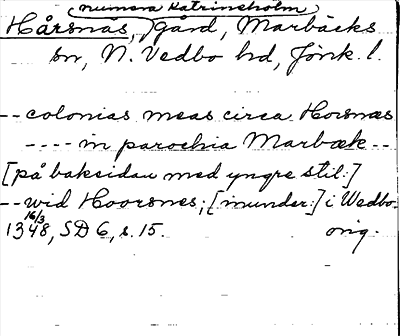 (numera Katrineholm)
Hårsnäs, gård, Marbäcks
sn, N. Vedbo hd, Jönk. l.
-- colonias meas circa Horsnæs
---- in parochia Marbæk --
[på baksidan med yngre stil:]
-- wid Hoorsnes; [inunder:] i Wedbo
16/3
1348, SD 6, s. 15. orig.